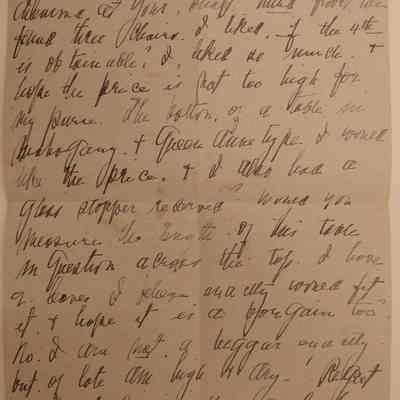 at your
found three chairs I liked, if the 4th
is obtainable? I liked so much. &
hope the price is not too high for
my purse. The bottom, of a table in
Mahogany. & Queen Anne type I would
like the price. & I also had a
glass stopper reserved would you
measure the length of this table
in question across the top. I have
I exactly would fit
it. & hope it is a bargain too
No. I am not a beggar exactly
but of late am high & dry -